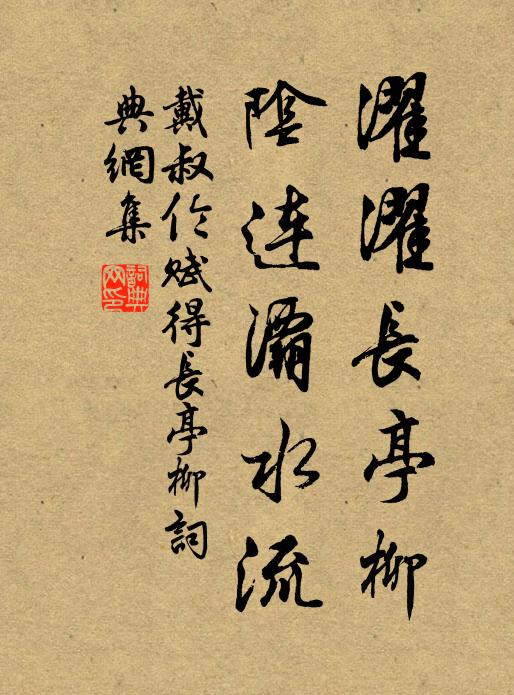 濯濯長亭柳
陰連灞水流
戴叔伦賦得長亭柳詞
典網集
詞典
网印